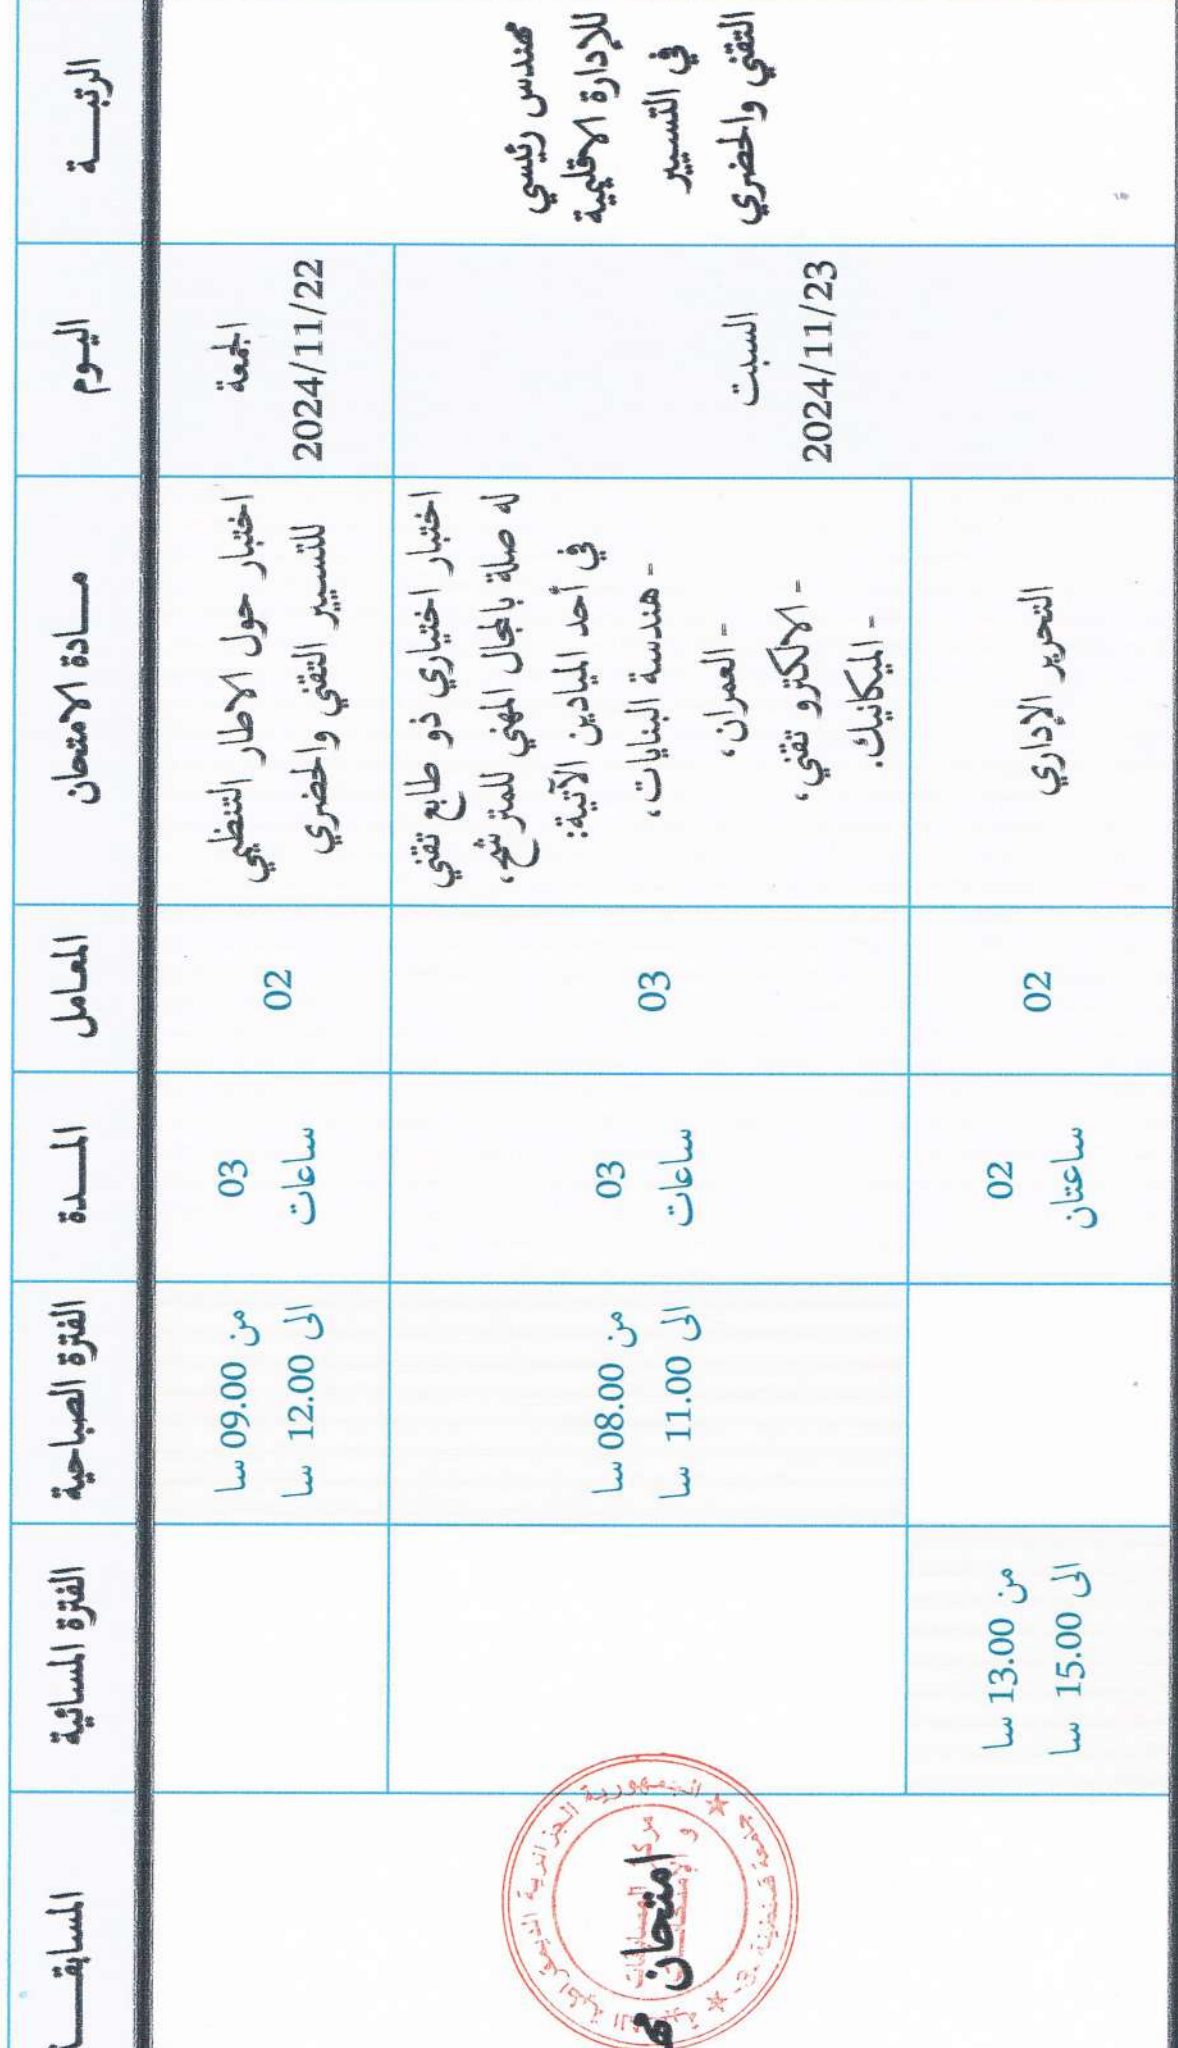 الرتبــــة
اليـوم
مــــادة الامتحان
المعامل
المــــدة
الفترة الصباحية
الفترة المسائية
مهندس رئيسي
للإدارة الاقليمية
في التسيير
التقني والحضري
الجمعة
2024/11/22
اختبار حول الاطار التنظيمي
للتسيير التقني والحضري
02
03
ساعات
من 09.00 سا
الى 12.00 سا
السبت
2024/11/23
اختبار اختياري ذو طابع تقني
له صلة بالمجال المهني للمترشح،
في أحد الميادين الآتية:
- هندسة البنايات،
- العمران،
- الالكترو تقني،
- الميكانيك.
03
03
ساعات
من 08.00 سا
الى 11.00 سا
التحرير الإداري
02
02
ساعتان
من 13.00 سا
الى 15.00 سا
امتحان
الجمهورية الجزائرية الديمقراطية
جامعة قسنطينة